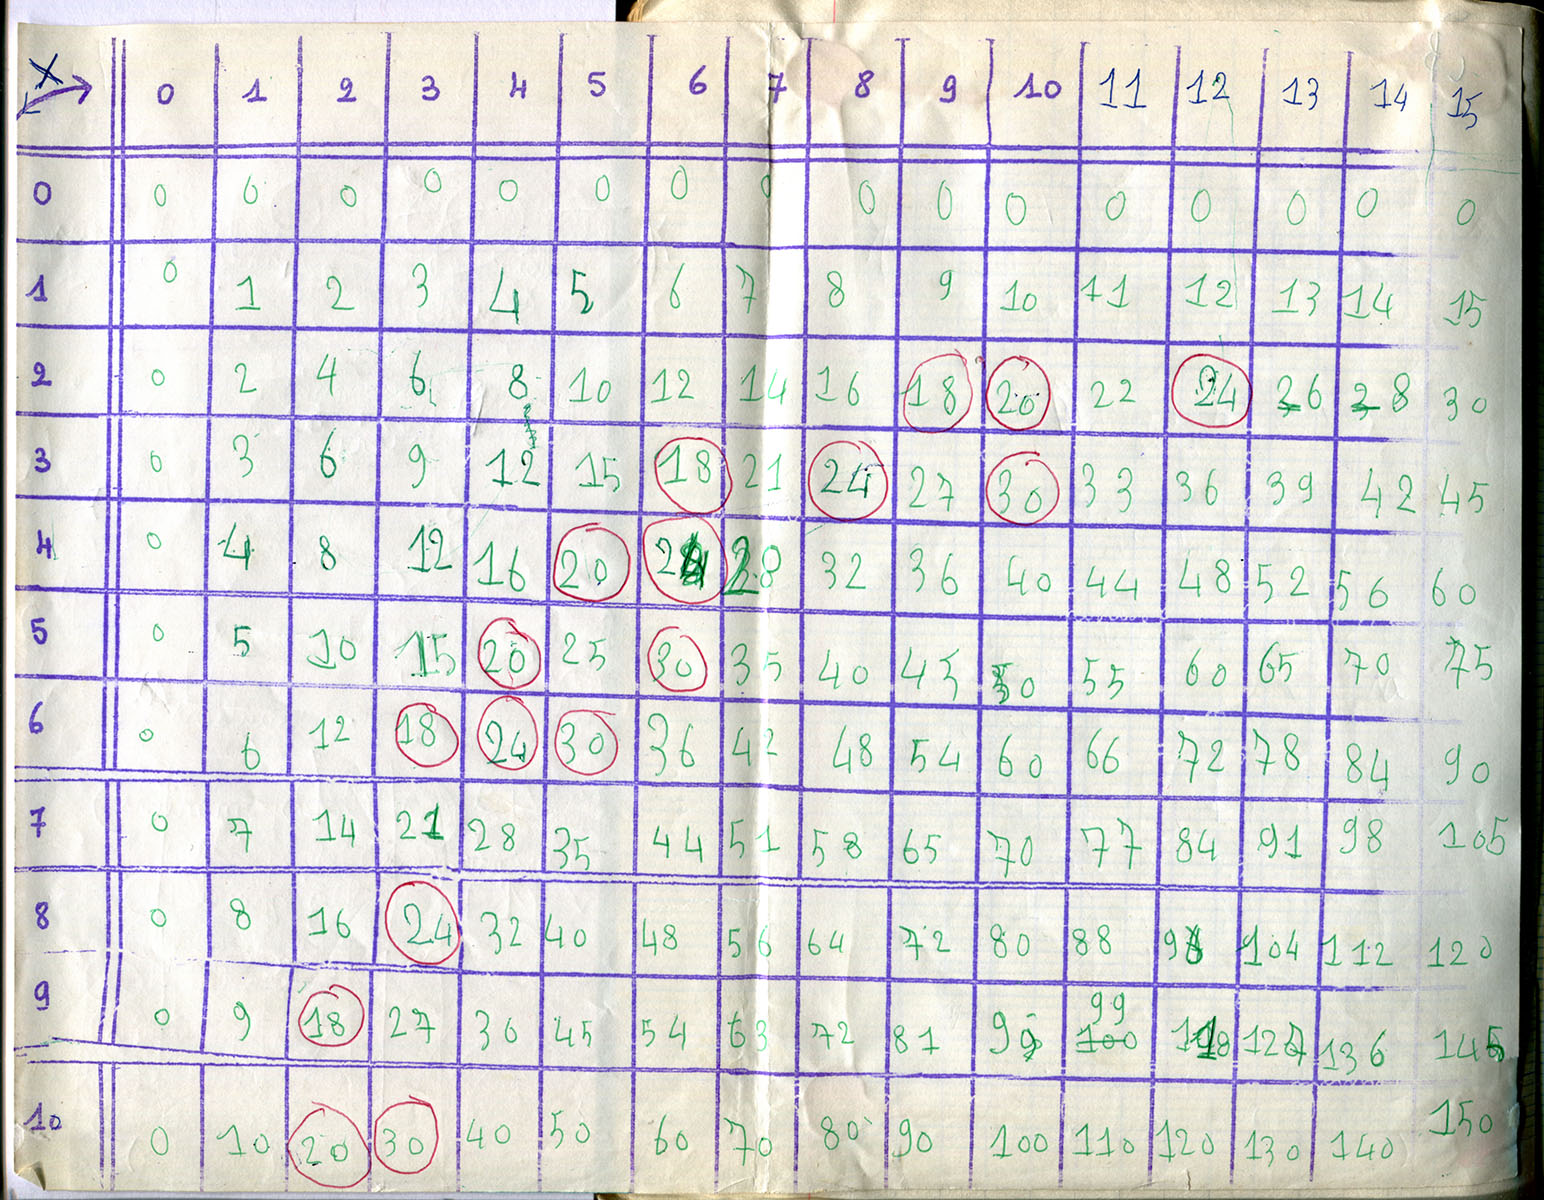 X 0 1 2 3 4 5 6 7 8 9 10 11 12 13 14 15
0 0 0 0 0 0 0 0 0 0 0 0 0 0 0 0 0
1 0 1 2 3 4 5 6 7 8 9 10 11 12 13 14 15
2 0 2 4 6 8 10 12 14 16 18 20 22 24 26 28 30
3 0 3 6 9 12 15 18 21 24 27 30 33 36 39 42 45
4 0 4 8 12 16 20 24 28 32 36 40 44 48 52 56 60
5 0 5 10 15 20 25 30 35 40 45 50 55 60 65 70 75
6 0 6 12 18 24 30 36 42 48 54 60 66 72 78 84 90
7 0 7 14 21 28 35 44 51 58 65 70 77 84 91 98 105
8 0 8 16 24 32 40 48 56 64 72 80 88 104 112 120
99
9 0 9 18 27 36 45 54 63 72 81 100 136
10 0 10 20 30 40 50 60 70 80 90 100 110 120 130 140 150